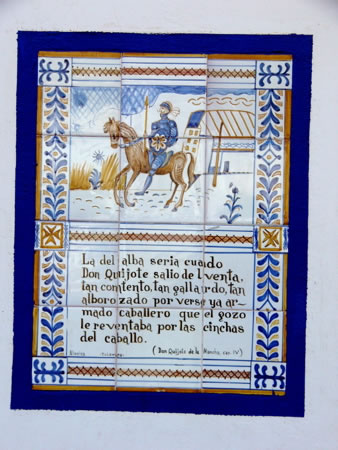 La del alba seria cuando
Don Quijote salio de l venta,
tan contento, tan gallardo, tan
alboro zado por verse ya ar-
mado caballero que el gozo
le reventaba por las cinchas
del caballo.
(Don Quijote de la Mancha, cap. IV)